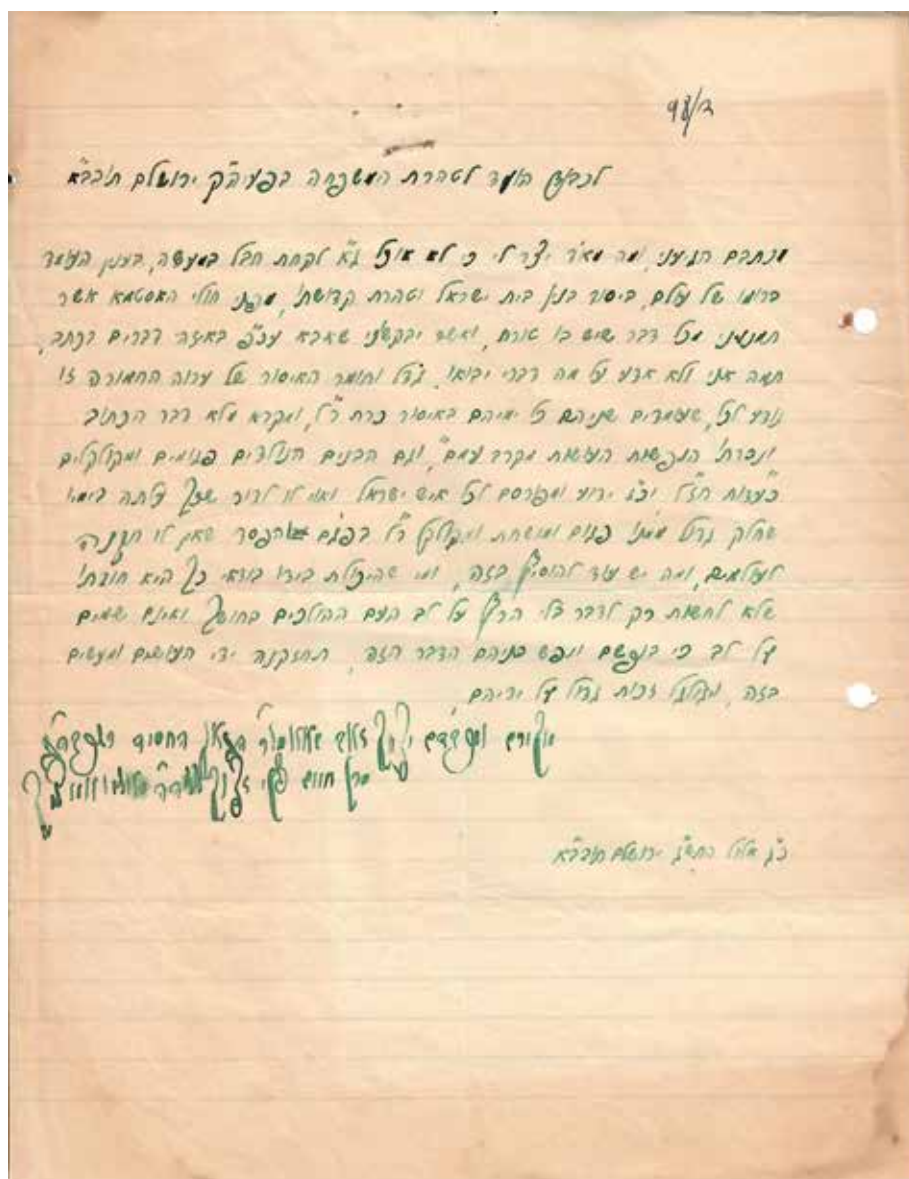 לכבוד הועד לטהרת המשפחה בפעיה"ק ירושלם תובב"א
מכתבם הגיעני, ומה מאד יצר לי כי לא אוכל ג"א לקחת חבל במעשה, בענין העומד
ברומו של עולם, ביסוד בנין בית ישראל וטהרת קדושתו, מפני חולי האסטמא אשר
תמנעני מכל דבר שיש בו טורח, ואשר יבקשוני שאבא עכ"פ באיזה דברים בכתב,
תמה אני ולא אדע על מה דברי יבואו, גודל וחומר האיסור של ערוה החמורה זו
נודע לכל, שעומדים שניהם כל ימיהם באיסור כרת ר"ל, ומקרא מלא דבר הכתוב
ונכרתו הנפשות העושות מקרב עמם", וגם הבנים הנולדים פגומים ומקולקלים
כעדות חז"ל וכ"ז ידוע ומפורסם לכל איש ישראל ואוי לו לדור שכך עלתה בימיו
שחלק גדול ממנו פגום ומושחת ומקולקל ר"ל בפגם והפסד שאין לו תקנה
לעולמים, ומה יש עוד להוסיף בזה, ומי שהיכולת בידו בודאי כך היא חובתו
שלא לחשות רק לדבר בלי הרף על לב העם ההולכים בחושך ואינם שמים
על לב כי בנפשם ונפש בניהם הדבר הזה, תחזקנה ידי העושים ומעשים
בזה, ומגלגל זכות גדול על ידיהם,
מוקירם ומכבדם זאב החסיד
מרן חיים
כ"ג אלול התש"ג ירושלם תובב"א